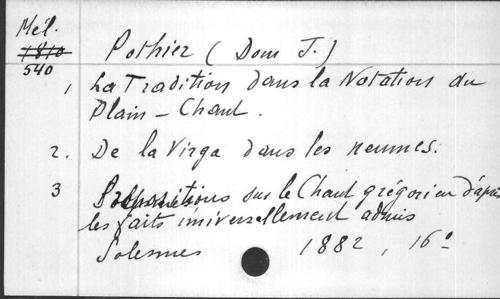 Mél.
1810
540
Pothier (Dom J.)
1 La Tradition dans la Notation du
Plain-Chant.
2. De la Virga dans les neumes.
3 Propositions sur le Chant grégorien d'après
les faits universellement admis
Solesmes 1882, 16º